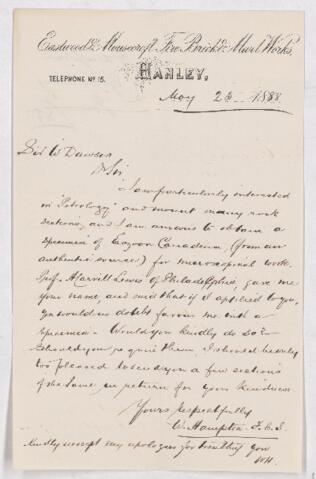 Eastwood & Mousecroft Fire Brick & Marl Works.
TELEPHONE No 15.
HANLEY,
May 1888
Sir W Dawson
Dr Sir
I am particularly interested
in "Petrology" and mount many rock
sections, and I am anxious to obtain a
specimen of Eozoon Canadense, (from an
authentic source) for microscopical work.
Prof. Carvill Lewis of Philadelphia, gave me
your name, and said that if I applied to you,
you would no doubt favour me with a
specimen. Would you kindly do so?
Should you require them, I should be only
too pleased to send you a few sections
of the same, in return for your kindness
Yours respectfully
W. Hampton F.C.S.
Kindly accept my apologies for troubling you
WH.